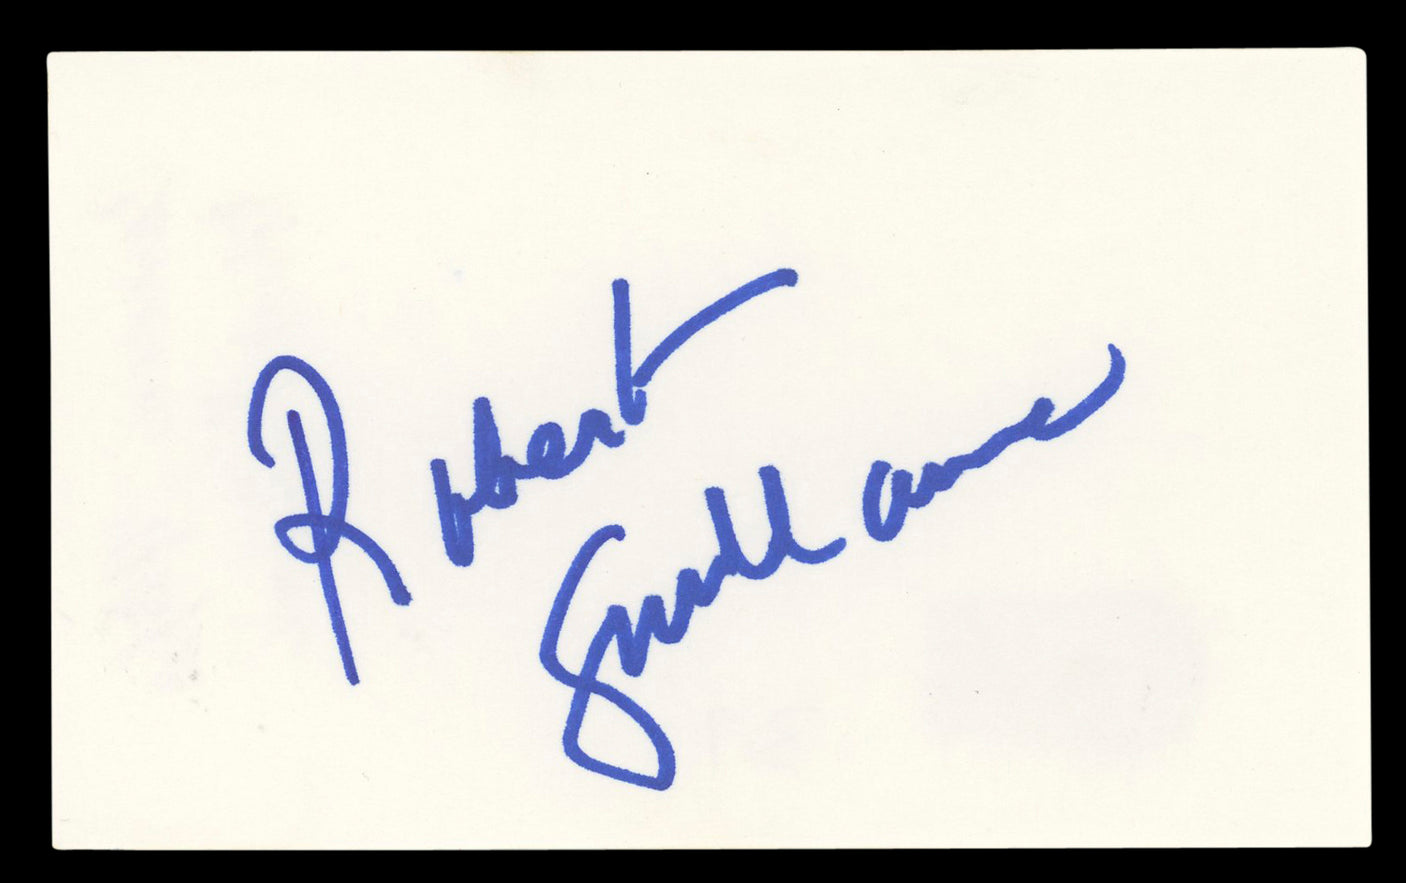 Robert
Guillaume